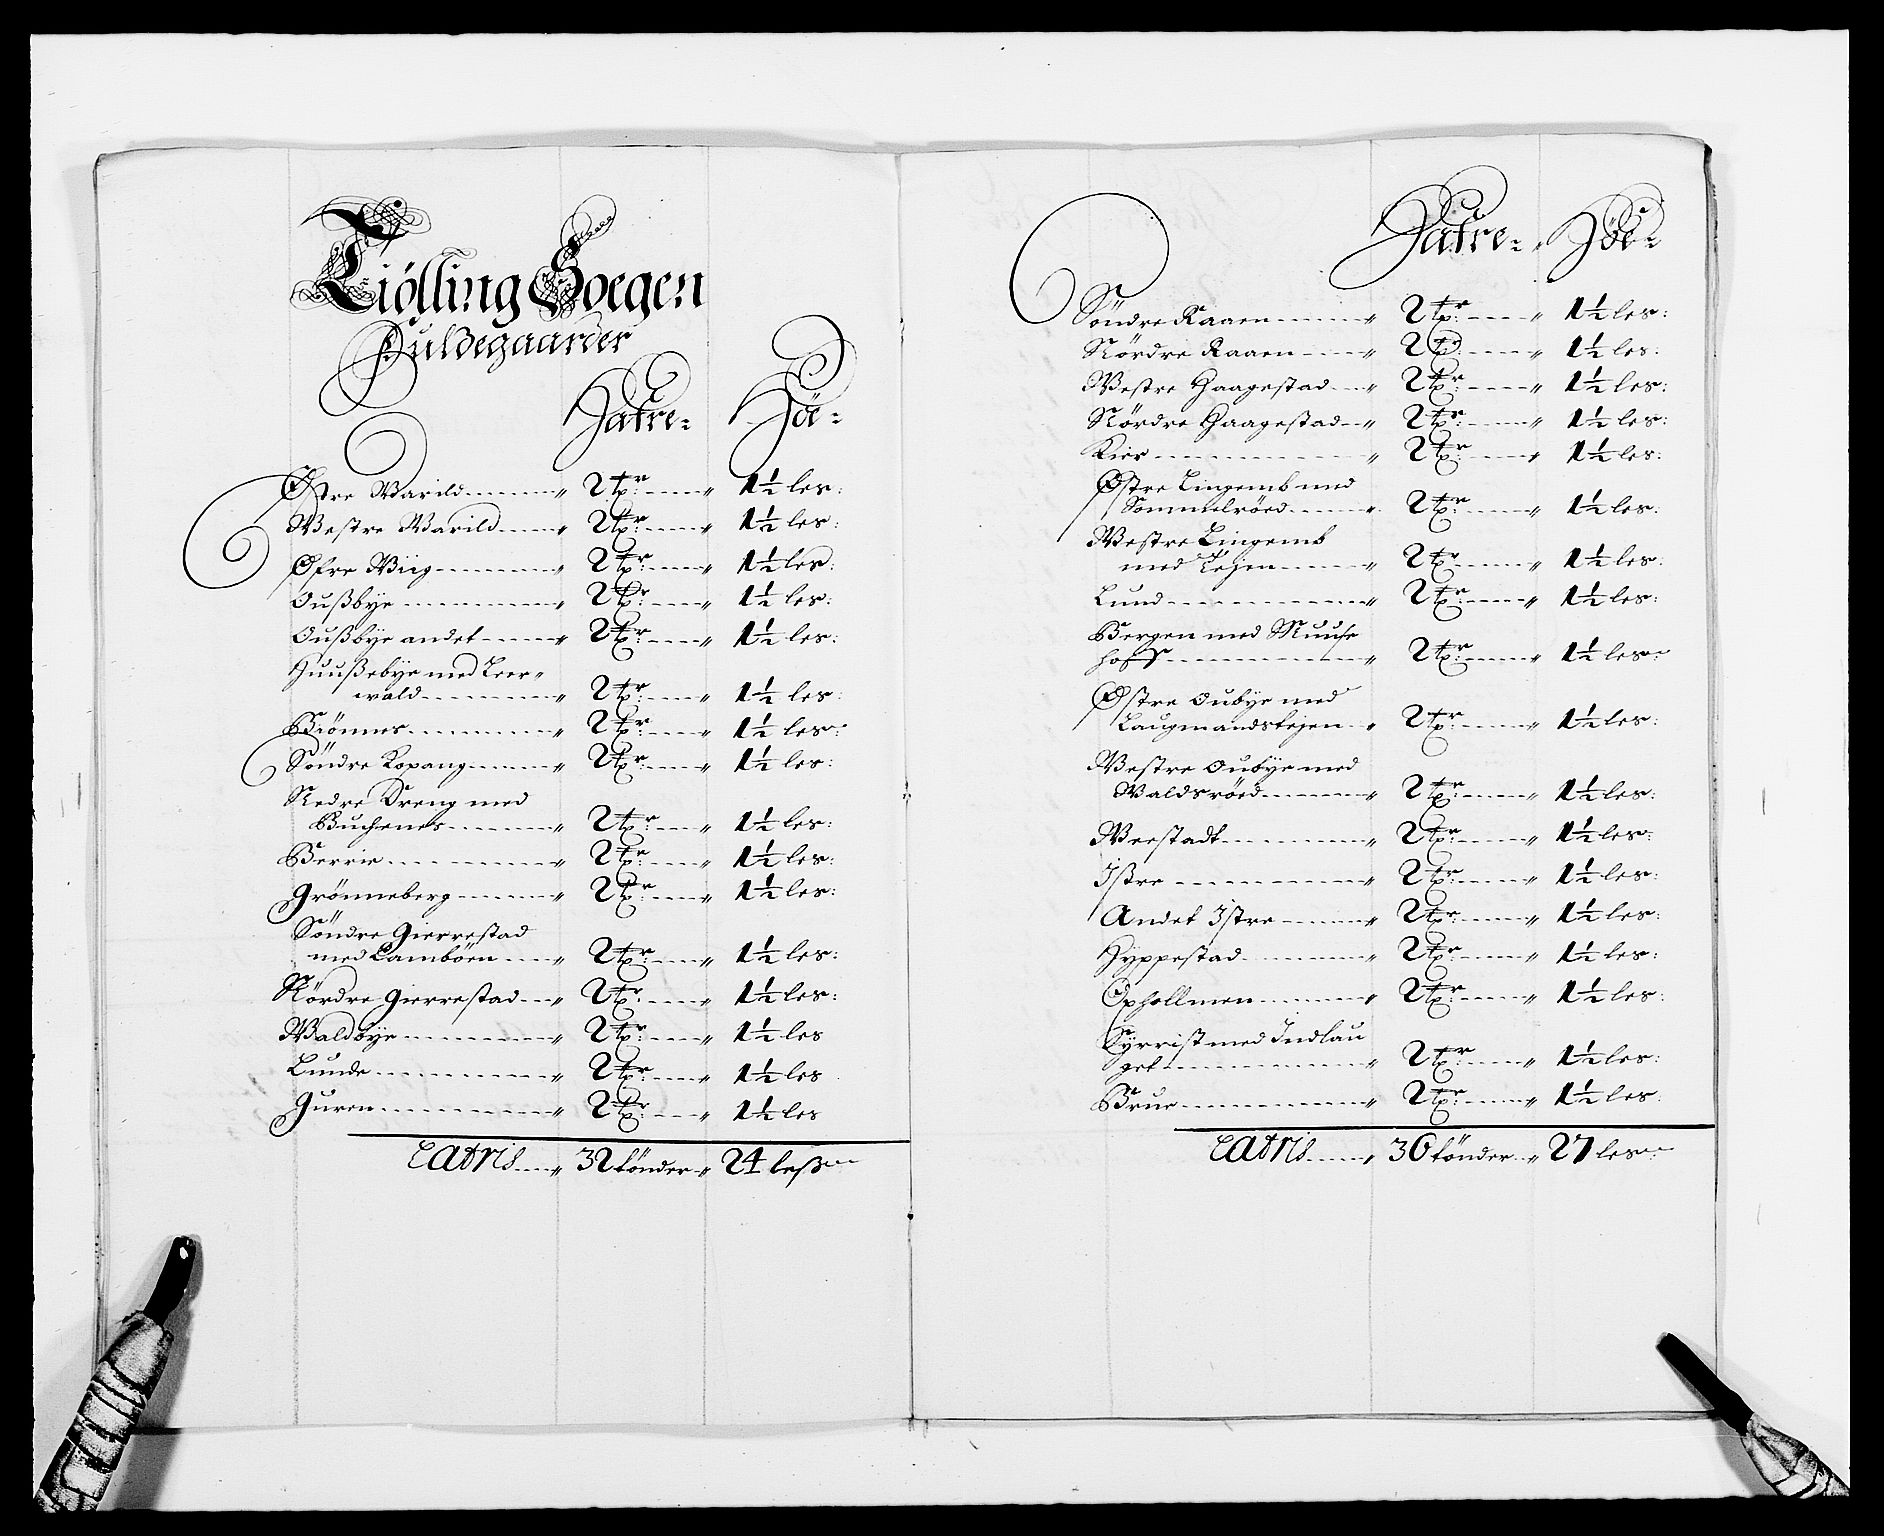 Tiølling Soegen
Fuldegaarder
Hafre- Höe-
Østre Warild " 2 tr " 1½ les:
Westre Warild " 2 tr: " 1½ les:
Øfre Wiig " 2 tr: " 1½ les:
Oußbye " 2 tr: " 1½ les:
Oußbye andet " 2 tr: " 1½ les:
Huußebye med Leer-
wald " 2 tr: " 1½ les:
Biönnes " 2 tr: " 1½ les:
Söndre Kopang " 2 tr: " 1½ les:
Nedre Dreng med
Buchenes " 2 tr: " 1½ les:
Berrie " 2 tr: " 1½ les:
Grönneberg " 2 tr: " 1½ les:
Söndre Gierrestad
med Lamböen " 2 tr: " 1½ les:
Nördre Gierrestad " 2 tr: " 1½ les:
Waldbye " 2 tr: " 1½ les
Lunde " 2 tr: " 1½ les
Guren " 2 tr: " 1½ les
Latris " 32 tönder " 24 leß
Hafre- " Höe-
Söndre Raaen " 2 tr: " 1½ les:
Nördre Raaen " 2 tr: " 1½ les:
Westre Haagestad " 2 tr: " 1½ les:
Nördre Haagestad " 2 tr: " 1½ les:
Kier " 2 tr: " 1½ les:
Østre Lingemb med
Sommelröed " 2 tr: " 1½ les:
Westre Lingemb
med Lejen " 2 tr: " 1½ les:
Lund " 2 tr: " 1½ les:
Bergen med Muuse
hoff " 2 tr: " 1½ les:
Østre Oubye med
Laugmandslejen " 2 tr: " 1½ les:
Westre Oubye med
Waldsröed " 2 tr: " 1½ les:
Weestadt " 2 tr: " 1½ les:
Istre " 2 tr: " 1½ les:
Andet Istre " 2 tr: " 1½ les:
Hyppestad " 2 tr: " 1½ les:
Ophollmen " 2 tr: " 1½ les:
Syrrist med Indlau
get " 2 tr: " 1½ les:
Brue " 2 tr: " 1½ les:
Latris " 36 tönder " 27 les